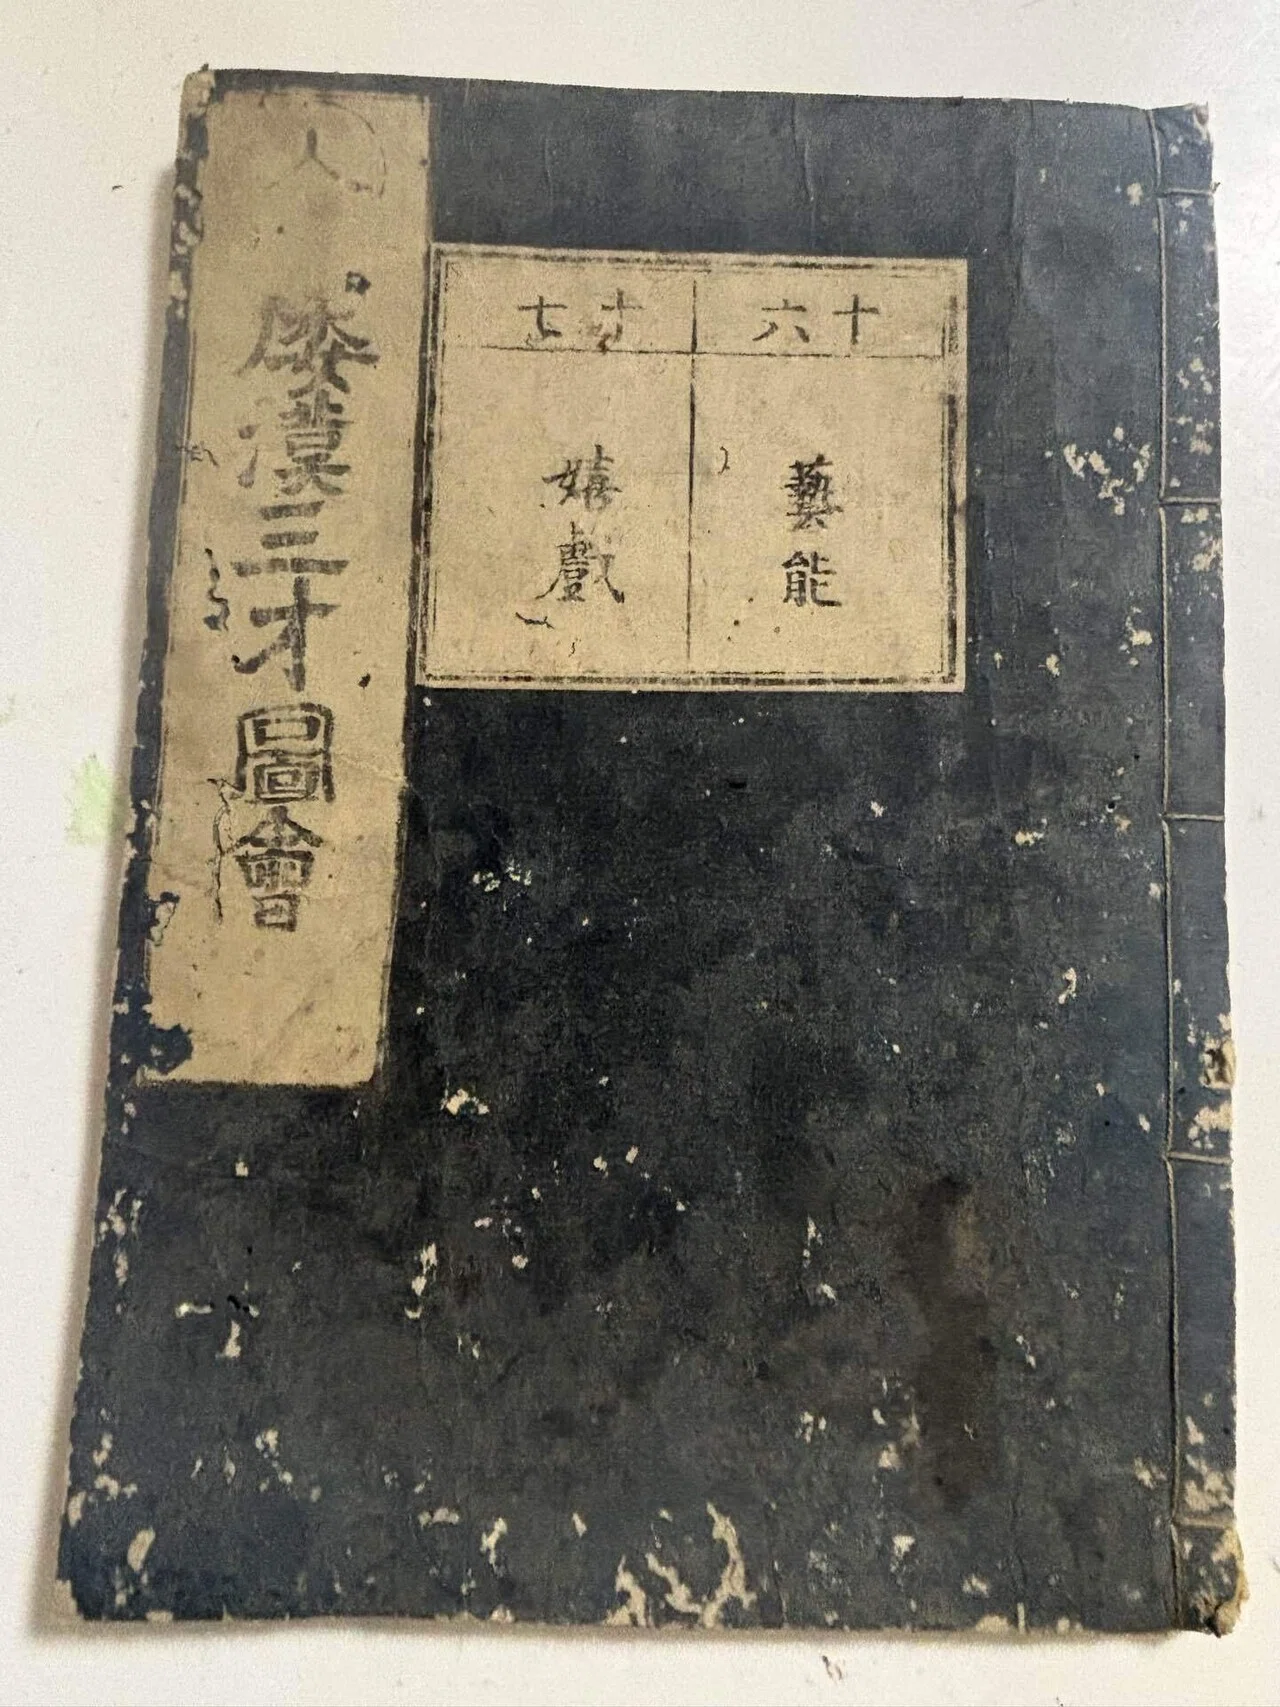 人
倭漢三才圖會
十六
藝能
十七
嬉戲